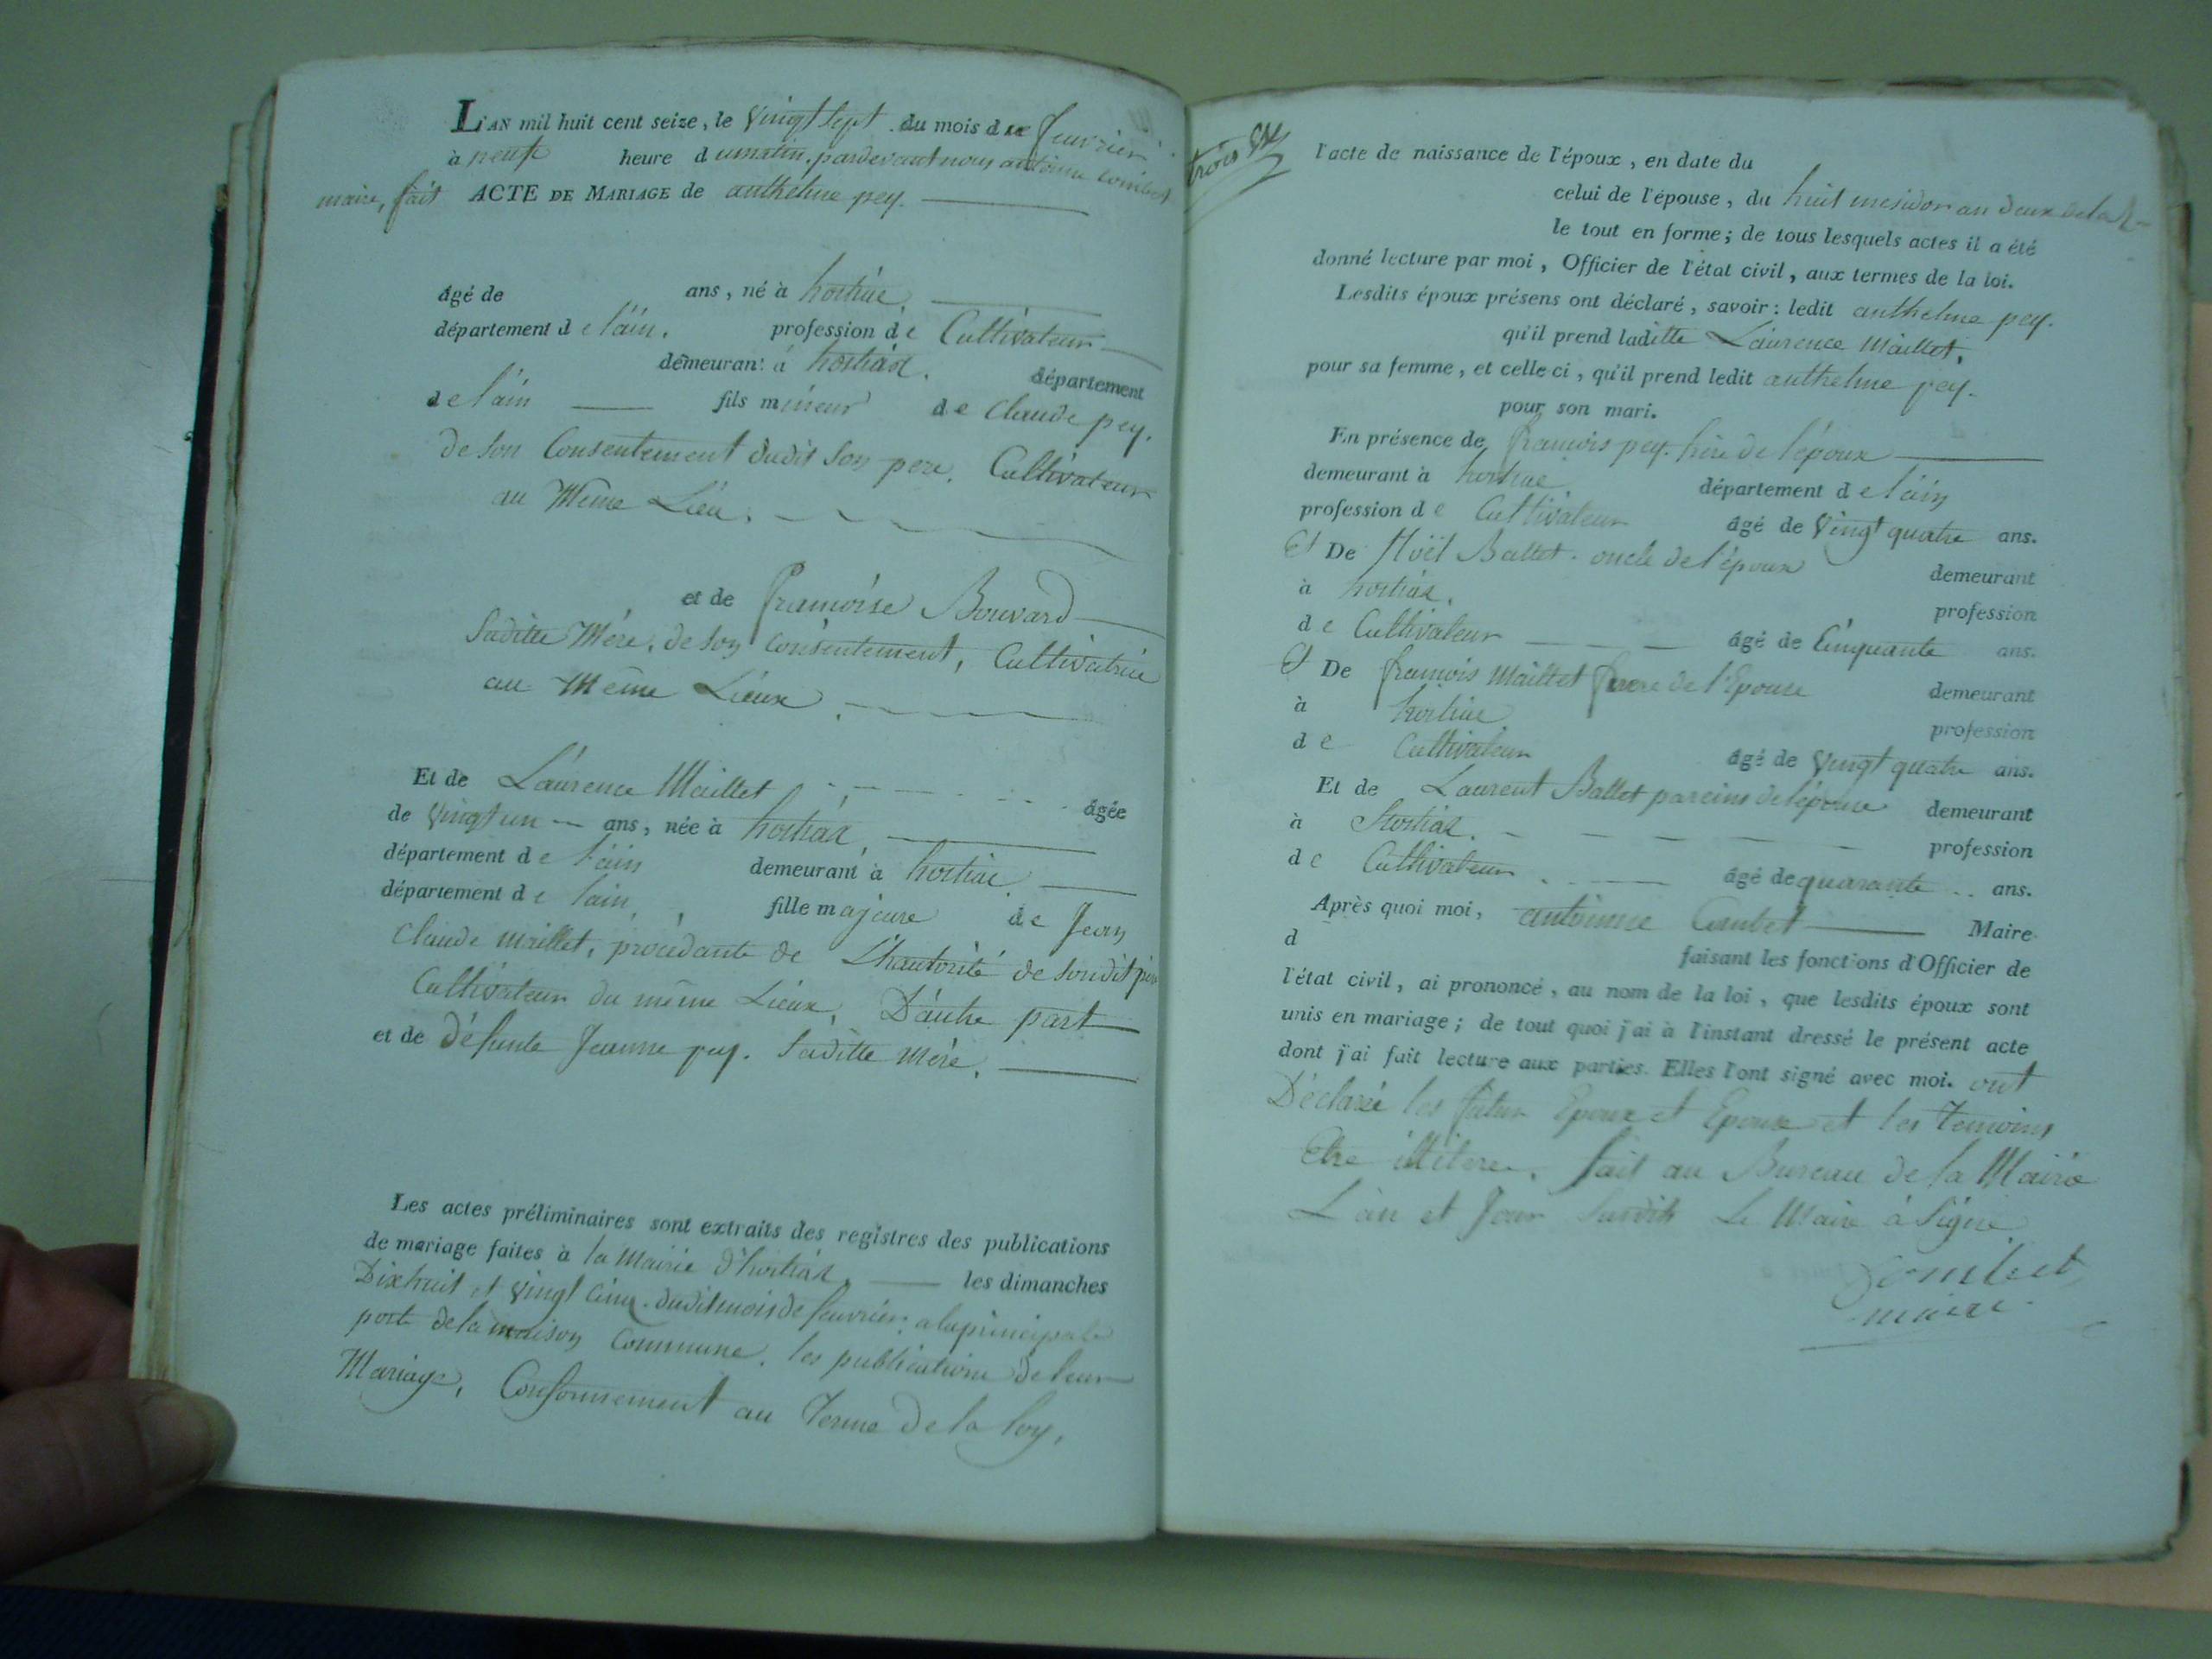 L'AN mil huit cent seize, le vingt sept du mois de feuvrier
à neuf heure du matin, pardevant nous antoinne Combet
maire, fait ACTE DE MARIAGE de anthelme pey.
âgé de ans, né à hostiac
département de l'ain. profession de Cultivateur
demeurant à hostiaz. département
de l'ain fils mineur de Claude pey.
de son Consentement dudit son pere, Cultivateur
au Même Lieu.
et de francoise Bouvard
Saditte Mére, de son consentement, Cultivatrice
au Même Lieux
Et de Laurence Maillet âgée
de vingt un ans, née à hostiaz,
département de l'ain demeurant à hostiac
département de lain fille majeure de Jean
Claude maillet, procedante de L'hautorité de sondit père
Cultivateur du même Lieux, D'autre part
et de défunte Jeanne pey. Saditte Mére.
Les actes préliminaires sont extraits des registres des publications
de mariage faites à la Mairie d'hostiaz, les dimanches
Dixhuit et vingt cinq. duditmois de feuvrier, a la principale
porte de la maison Commune. les publications de leur
Mariage, Conformement au Terme de la loy,
trois
l'acte de naissance de l'époux, en date du
celui de l'épouse, du huit mesidor an deux de la R
le tout en forme; de tous lesquels actes il a été
donné lecture par moi, Officier de l'état civil, aux termes de la loi.
Lesdits époux présens ont déclaré, savoir: ledit anthelme pey.
qu'il prend laditte Laurence Maillet,
pour sa femme, et celle ci, qu'il prend ledit anthelme pey.
pour son mari.
En présence de francois pey. frère de l'époux
demeurant à hostiac département de l'ain
profession de Cultivateur âgé de vingt quatre ans.
Et De Noël Ballet. oncle de l'époux demeurant
à hostiaz. profession
de Cultivateur âgé de Cinquante ans.
Et De francois Maillet frere de l'Epouse demeurant
à hostiac. profession
de Cultivateur âgé de vingt quatre ans.
Et de Laurent Ballet pareins de l'épouse demeurant
à Hostiaz. profession
de Cultivateur âgé de quarante ans.
Après quoi moi, antoinne Combet Maire
d faisant les fonctions d'Officier de
l'état civil, ai prononcé, au nom de la loi, que lesdits époux sont
unis en mariage; de tout quoi j'ai à l'instant dressé le présent acte
dont j'ai fait lecture aux parties. Elles l'ont signé avec moi. ont
Déclaré les futur Epoux et Epouse et les Temoins
Etre illitere. fait au Bureau de la Mairie
L'an et Jour Susdits Le Maire à Signé
Combet
maire